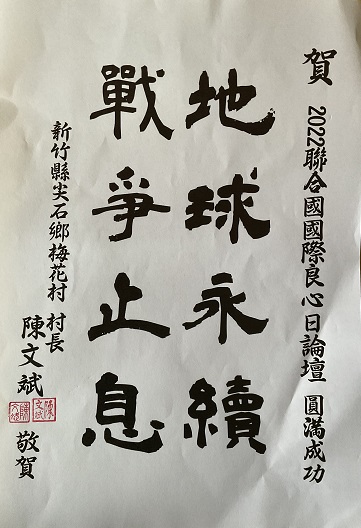 賀 2022聯合國國際良心日論壇 圓滿成功
地球永續
戰爭止息
新竹縣尖石鄉梅花村 村長 陳文斌 敬賀